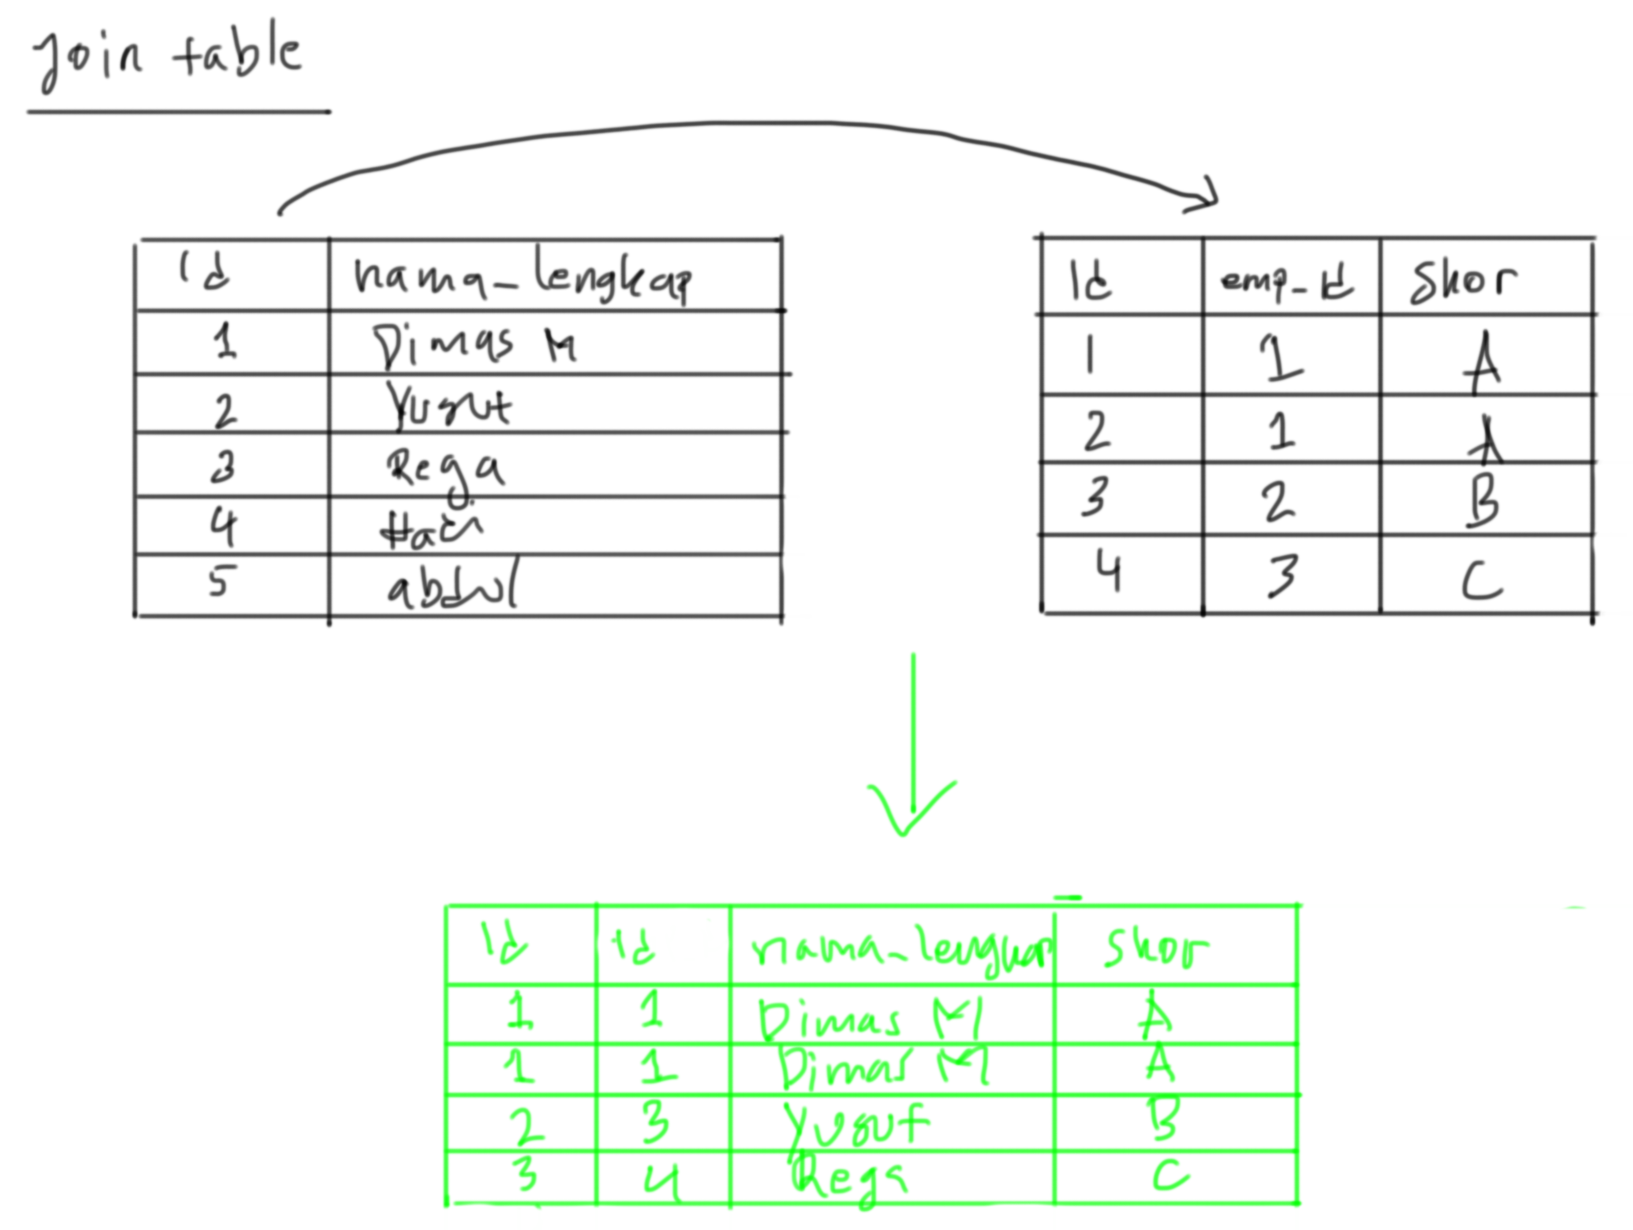 Join table
id nama_lengkap
1 Dimas M
2 Yusuf
3 Rega
4
5 abdul
Id emp_id Skor
1 1 A
2 1 A
3 2 B
4 3 C
Id id nama_lengkap Skor
1 1 Dimas M A
1 1 Dimas M A
2 3 Yusuf B
3 4 Rega C